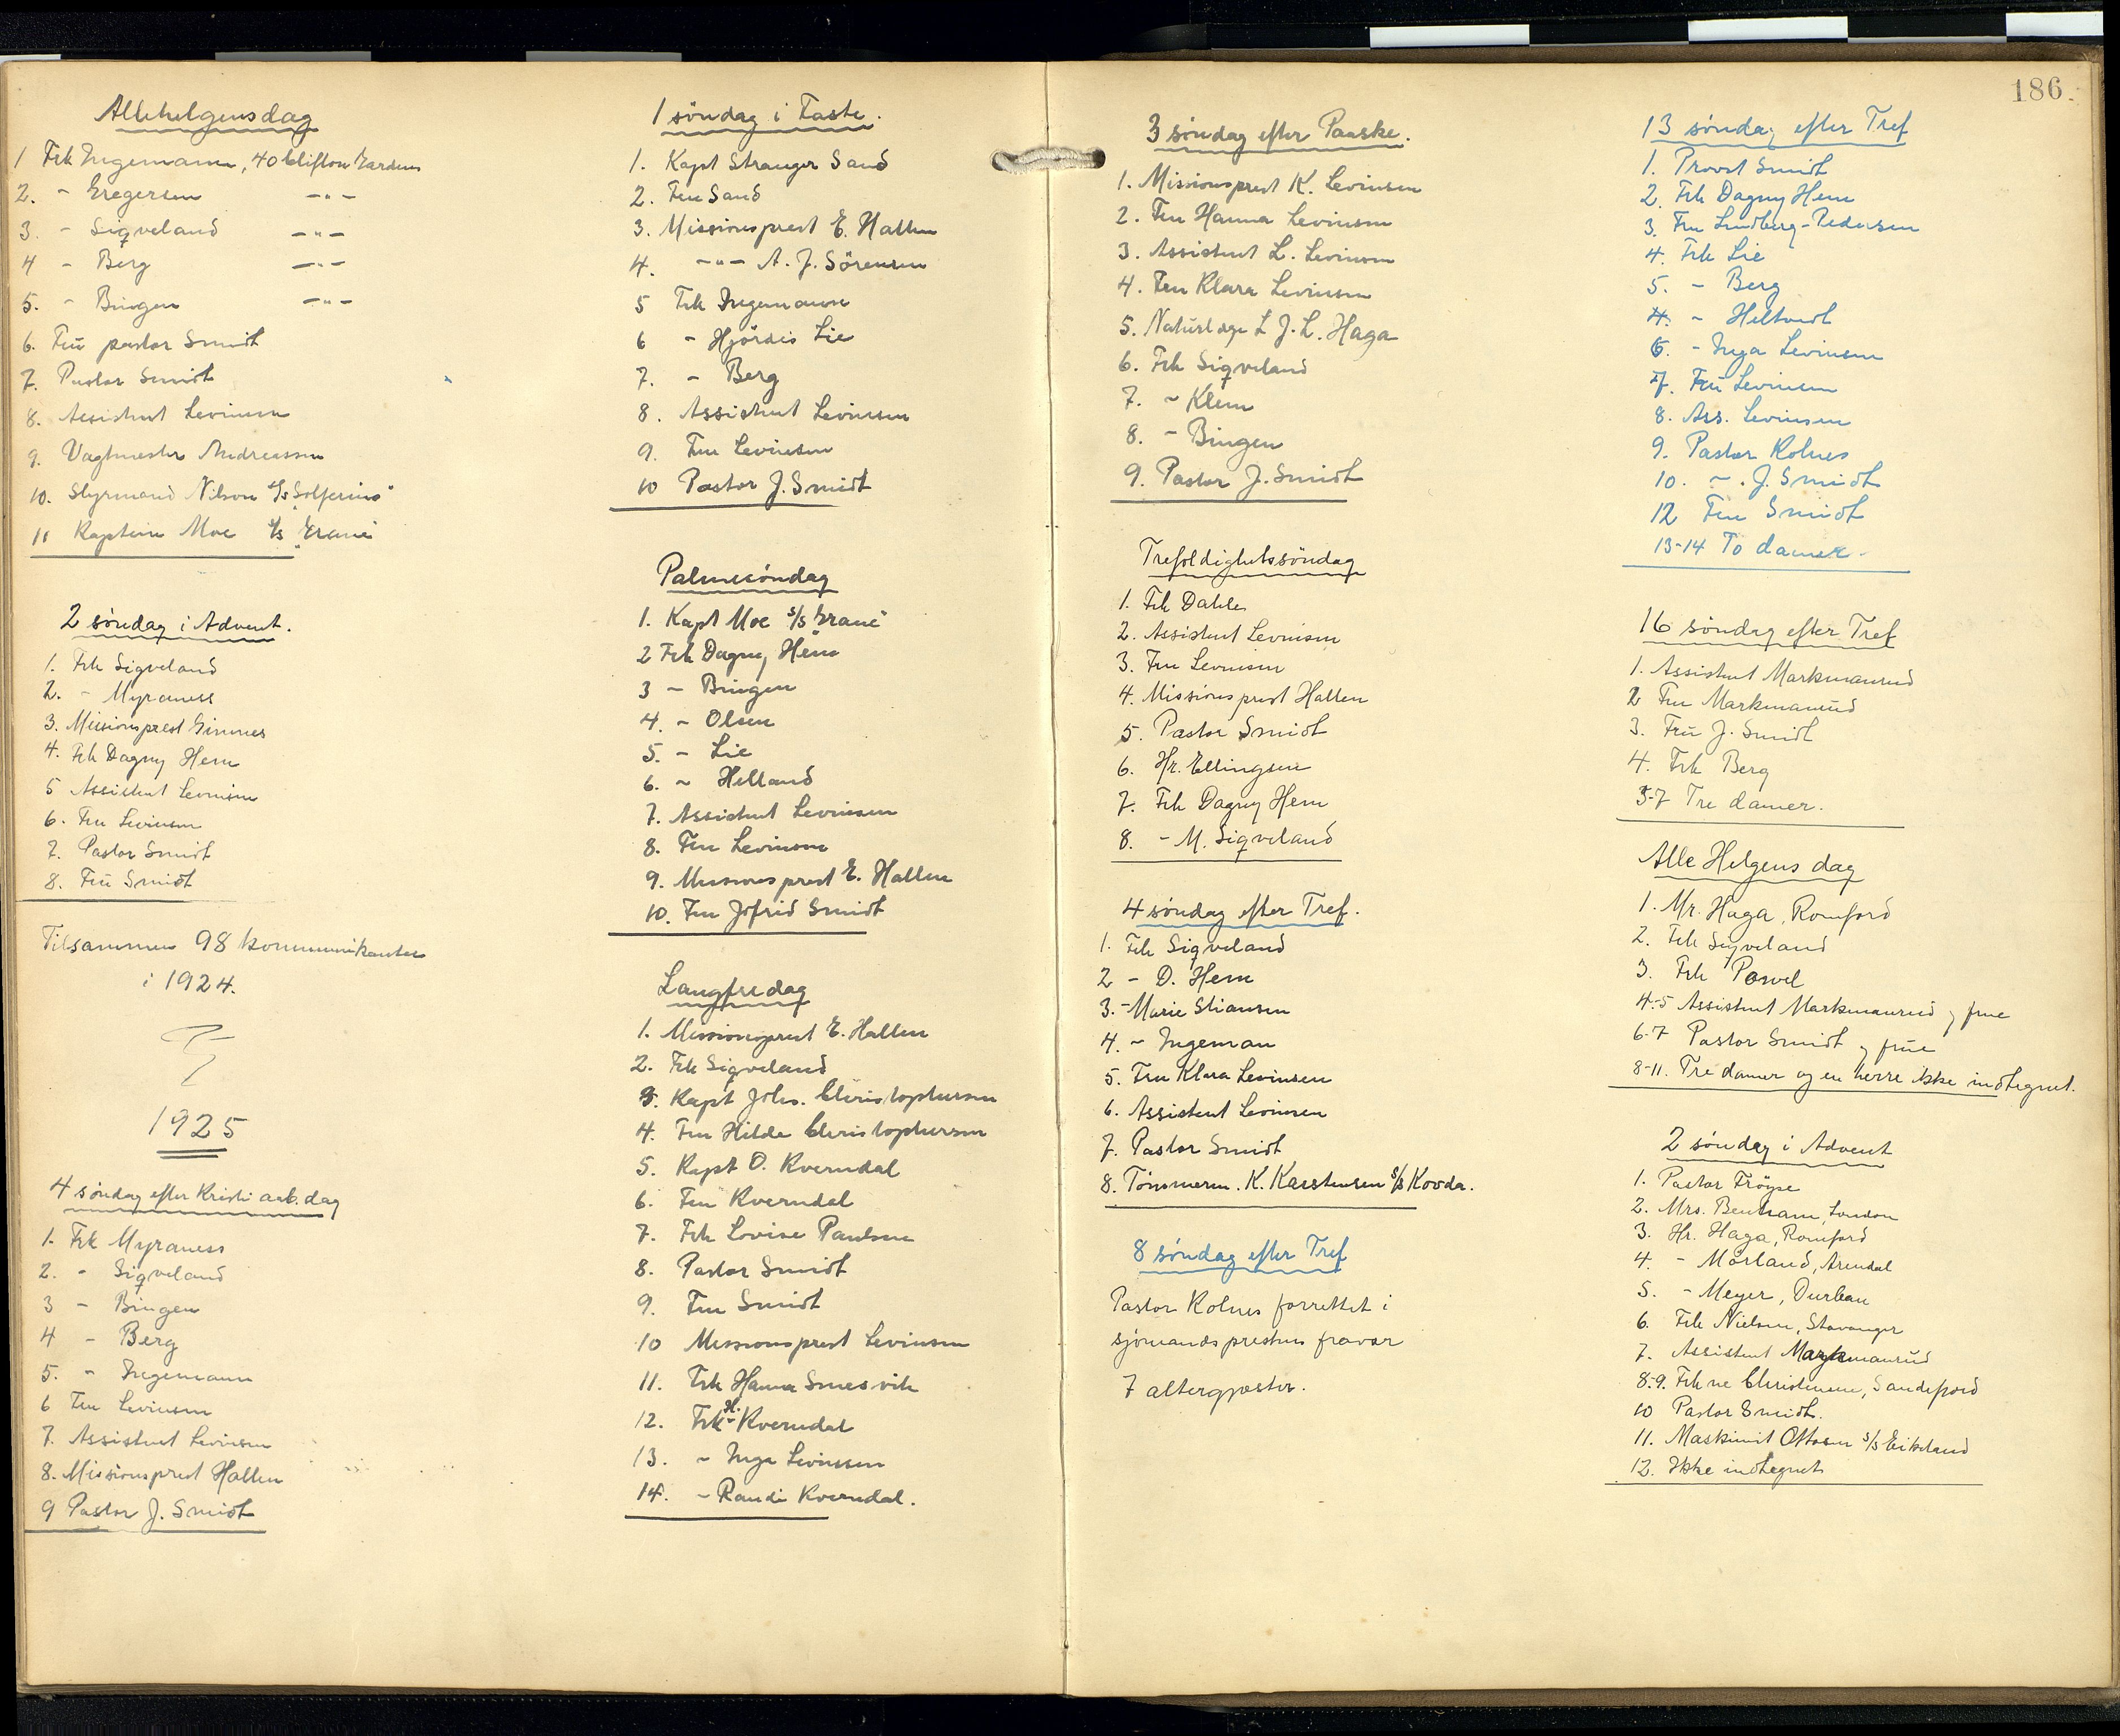 186.
Allehelgensdag
1 Frk Ingemann, 40 Clifton Gardens
2. - Gregersen -"-
3. - Sigveland -"-
4 - Berg -"-
5. - Bingen -"-
6. Fru pastor Smidt
7. Pastor Smidt
8. Assistent Levinsen
9. Vagtmester Andreassen
10. Styrmand Nilsen s/s "Solferino"
11 Kaptein Moe s/s "Grane"
2 søndag i Advent.
1. Frk Sigveland
2. - Myraness
3. Missionsprest Gimnes
4. Frk Dagny Hem
5 Assistent Levinsen
6. Fru Levinsen
7. Pastor Smidt
8. Fru Smidt
Tilsammen 98 kommunikanter
i 1924.
1925
4 søndag efter Kristi aab. dag
1. Frk Myraness
2. - Sigveland
3 - Bingen
4 - Berg
5. - Ingemann
6 Fru Levinsen
7. Assistent Levinsen
8. Missionsprest Hallen
9 Pastor J. Smidt
1 søndag i Faste.
1. Kapt Stranger Sand
2. Fru Sand
3. Missionsprest E. Hallen
4. -"- A. J. Sörensen
5 Frk Ingemann
6 - Hjördis Lie
7. - Berg
8. Assistent Levinsen
9. Fru Levinsen
10 Pastor J. Smidt
Palmesöndag
1. Kapt Moe s/s "Grane"
2 Frk Dagny Hem
3 - Bingen
4. - Olsen
5. - Lie
6. - Helland
7. Assistent Levinsen
8. Fru Levinsen
9. Missionsprest E. Hallen
10. Fru Jofrid Smidt
Langfredag
1. Missionsprest E. Hallen
2. Frk Sigveland
3. Kapt Johs. Christophersen
4. Fru Hilda Christophersen
5. Kapt O. Kverndal
6. Fru Kverndal
7. Frk Lovise Paulsen
8. Pastor Smidt
9. Fru Smidt
10 Missionsprest Levinsen
11. Frk Hanna Smesvik
12. Frk H. Kverndal
13. - Inga Levinsen
14. - Randi Kverndal.
3 søndag efter Paaske.
1. Missionsprest K. Levinsen
2. Fru Hanna Levinsen
3. Assistent L. Levinsen
4. Fru Klara Levinsen
5. Naturlæge L J. L. Haga
6. Frk Sigveland
7. - Klem
8. - Bingen
9. Pastor J. Smidt
Trefoldighetssöndag
1. Frk Dahle
2. Assistent Levinsen
3. Fru Levinsen
4. Missionsprest Hallen
5. Pastor Smidt
6. Hr. Ellingsen
7. Frk Dagny Hem
8. - M. Sigveland
4 søndag efter Tref.
1. Frk Sigveland
2 - D. Hem
3. - Marie Stiansen
4. - Ingeman
5. Fru Klara Levinsen
6. Assistent Levinsen
7. Pastor Smidt
8. Tømmerm. K. Karstensen s/s Kovda.
8 søndag efter Tref
Pastor Kolnes forrettet i
sjömandsprestens fravær
7 altergjæster.
13 søndag efter Tref
1. Provst Smidt
2. Frk Dagny Hem
3. Fru Lundberg-Pedersen
4. Frk Lie
5. - Berg
4. - Heltvedt
6. - Inga Levinsen
7. Fru Levinsen
8. Ass. Levinsen
9. Pastor Kolnes
10. - . J. Smidt
12 Fru Smidt
13-14 To damer.
16 søndag efter Tref
1. Assistent Markmanrud
2 Fru Markmanrud
3. Fru J. Smidt
4. Frk Berg
5-7 Tre damer.
Alle Helgens dag
1. Mr. Haga, Romford
2. Frk Sigveland
3. Frk Powel
4-5 Assistent Markmanrud og frue
6-7 Pastor Smidt og frue
8-11. Tre damer og en herre ikke indtegnet.
2 søndag i Advent
1. Pastor Fröyse
2. Mrs. Benham, London
3. Hr. Haga, Romford
4. - Mørland, Arendal
5. - Meyer, Durban
6. Frk Nielsen, Stavanger
7. Assistent Markmanrud
8-9. Frkne Christensen, Sandefjord
10 Pastor Smidt.
11. Maskinist Ottosen s/s Eikeland
12. Ikke indtegnet